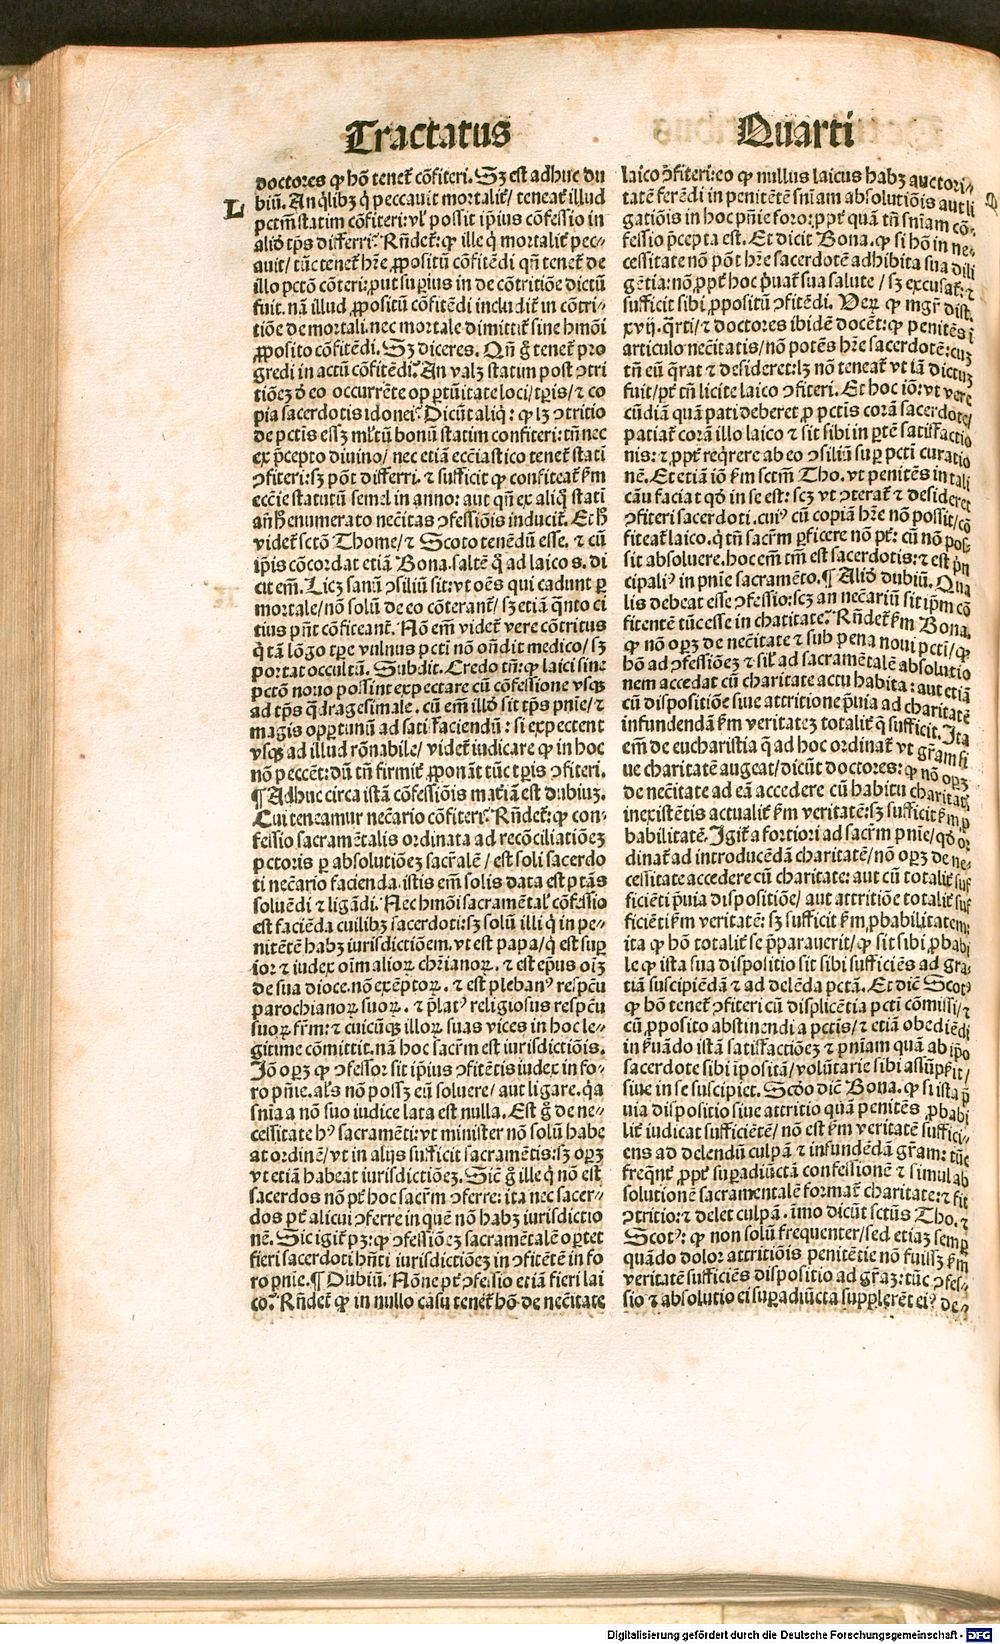 Tractatus
Quarti
doctores ꝙ hõ tenet̃ cõfiteri. Sꝫ est adhuc du
L
biũ. An q̃libꝫ q̇ peccauit mortalit̃/ teneat̃ illud
pctm̃ statim cõfiteri: vl̓ possit ip̃ius cõfessio in
aliõ tp̃s differri. Rñdet̃: ꝙ ille q̇ mortalit̃ pec⸗
auit/ tũc tenet̃ hr̃e ꝓpositũ cõfitẽdi qñ tenet̃ de
illo pctõ cõteri: put suꝑius in de cõtritiõe dictũ
fuit. nã illud ꝓpositũ cõfitẽdi includit̃ in cõtri⸗
tiõe de mortali. nec mortale dimittit̃ sine hmõi
ꝓposito cõfitẽdi. Sꝫ diceres. Qñ g̃ tenet̃ pro
gredi in actũ cõfitẽdi. An valꝫ statim post ↄtri
tiõeꝫ ꝺ eo occurrẽte opꝑtũitate loci/ tꝑis/ ⁊ co
pia sacerdotis idonei. Dicũt aliq̇: ꝙ lꝫ ↄtritio
de pctis essꝫ ml̓tũ bonũ statim confiteri: tñ nec
ex p̃cepto diuino/ nec etiã ecc̃iastico tenet̃ stati
ↄfiteri: sꝫ põt differri. ⁊ sufficit ꝙ confiteat̃ ẜm
ecc̃ie statutũ semel in anno: aut qñ ex aliq̇ stati
añ h̃ enumerato nec̃itas ↄfessiõis inducit̃. Et h̃
videt̃ sctõ Thome/ ⁊ Scoto tenẽdũ esse. ⁊ cũ
ip̃is cõcordat etiã Bona. saltẽ q̃ ad laico s. di
cit em̃. Licꝫ sanũ ↄsiliũ sit: vt oẽs qui cadunt ꝑ
mortale/ nõ solũ de eo cõterant̃/ sꝫ etiã q̃nto ci
tius pñt cõfiteant̃. Nõ em̃ videt̃ vere cõtritus
q̇ tã lõgo tꝑe vulnus pcti nõ oñdit medico/ sꝫ
portat occultã. Subdit. Credo tñ: ꝙ laici sine
pctõ nouo possint expectare cũ cõfessione vsqꝫ
ad tp̃s q̃dragesimale. cũ em̃ illõ sit tp̃s pnie/ ⁊
magis opꝑtunũ ad satiſfaciendũ: si expectent
vsqꝫ ad illud rõnabile/ videt̃ iudicare ꝙ in hoc
nõ peccẽt: dũ tñ firmit̃ ꝓponãt tũc tꝑis ↄfiteri.
¶ Adhuc circa istã cõfessiõis mat̃iã est dubiuꝫ.
Cui teneamur nec̃ario cõfiteri. Rñdet̃: ꝙ con⸗
fessio sacramẽtalis ordinata ad recõciliatiõeꝫ
pctoris ꝑ absolutiõeꝫ sacr̃alẽ/ est soli sacerdo
ti nec̃ario facienda. istis em̃ solis data est ptãs
soluẽdi ⁊ ligãdi. Nec hmõi sacramẽtal̓ cõfessio
est faciẽda cuilibꝫ sacerdoti: sꝫ solũ illi q̇ in pe⸗
nitẽtẽ habꝫ iurisdictiõem. vt est papa/ q̇ est suꝑ
ior ⁊ iudex oim̃ alioꝝ chr̃ianoꝝ. ⁊ est ep̃us oiꝫ
de sua dioce. nõ exẽptoꝝ. ⁊ est pleban⁹ respcũ
parochianoꝝ suoꝝ. ⁊ p̃lat⁹ religiosus respcũ
suoꝝ fr̃m: ⁊ cuicũqꝫ illoꝝ suas vices in hoc le⸗
gitime cõmittit. nã hoc sacr̃m est iurisdictiõis.
Jõ oꝑꝫ ꝙ ↄfessor sit ip̃ius ↄfitẽtis iudex in fo⸗
ro pñie. al̓s nõ possꝫ eũ soluere/ aut ligare. q̇a
snĩa a nõ suo iudice lata est nulla. Est g̃ de ne⸗
cessitate h⁹ sacramẽti: vt minister nõ solũ habe
at ordinẽ/ vt in alijs sufficit sacramẽtis: sꝫ oꝑꝫ
vt etiã habeat iurisdictiõeꝫ. Sic̃ g̃ ille q̇ nõ est
sacerdos nõ pt̃ hoc sacr̃m ↄferre: ita nec sacer⸗
dos pt̃ alicui ↄferre in quẽ nõ habꝫ iurisdictio
nẽ. Sic igit̃ pꝫ: ꝙ ↄfessiõeꝫ sacramẽtalẽ oportet
fieri sacerdoti hñti iurisdictiõeꝫ in ↄfitẽtẽ in fo
ro pnie. ¶ Dubiũ. Nõne pt̃ ↄfessio etiã fieri lai
co. Rñdet̃ ꝙ in nullo casu tenet̃ hõ de nec̃itate
laico ↄ̃fiteri: eo ꝙ nullus laicus habꝫ auctori⸗
tatẽ ferẽdi in penitẽtẽ snĩam absolutiõis aut li
gatiõis in hoc pñie foro: ꝓpt̃ quã tñ snĩam cõ⸗
fessio p̃cepta est. Et dicit Bona. ꝙ si hõ in ne⸗
cessitate nõ põt hr̃e sacerdotẽ adhibita sua dili
gẽtia: nõ ꝓpt̃ hoc p̃uat̃ sua salute/ sꝫ excusat̃: ⁊
sufficit sibi ꝓpositũ ↄfitẽdi. Veꝝ ꝙ mgr̃ dist.
xvij. q̃rti/ ⁊ doctores ibidẽ docẽt: ꝙ penitẽs ĩ
articulo nec̃itatis/ nõ potẽs hr̃e sacerdotẽ: cuꝫ
tñ eũ q̃rat ⁊ desideret: lꝫ nõ teneat̃ vt iã dictuꝫ
fuit/ pt̃ tñ licite laico ↄfiteri. Et hoc iõ: vt vere
cũdiã quã pati deberet ꝓ pctis corã sacerdote/
patiat̃ corã illo laico ⁊ sit sibi in ꝑtẽ satiſfactio
nis: ⁊ ꝓpt̃ reqrere ab eo ↄsiliũ suꝑ pcti curatio
nẽ. Et etiã iõ ẜm sctm̃ Tho. vt penitẽs in tali
cãu faciat qõ in se est: scꝫ vt ↄterat̃ ⁊ desideret
ↄfiteri sacerdoti. cui⁹ cũ copiã hr̃e nõ possit/ cõ
fiteat̃ laico. q̇ tñ sacr̃m ꝑficere nõ pt̃: cũ nõ pos⸗
sit absoluere. hoc em̃ tm̃ est sacerdotis: ⁊ est p̃n
cipali⁹ in pnie sacramẽto. ¶ Aliõ dubiũ. Qua
lis debeat esse ↄfessio: scꝫ an nec̃ariũ sit ip̃m cõ
fitentẽ tũc esse in charitate. Rñdet̃ ẜm Bona.
ꝙ nõ oꝑꝫ de nec̃itate ⁊ sub pena noui pcti/ ꝙ
hõ ad ↄfessiõeꝫ ⁊ sil̓ ad sacramẽtalẽ absolutio
nem accedat cũ charitate actu habita: aut etiã
cũ dispositiõe siue attritione p̃uia ad charitatẽ
infundendã ẜm veritateꝫ totalit̃ q̃ sufficit. Ita
em̃ de eucharistia q̃ ad hoc ordinat̃ vt gr̃am si
ue charitatẽ augeat/ dicũt doctores: ꝙ nõ oꝑꝫ
de nec̃itate ad eã accedere cũ habitu charitatꝭ
inexistẽtis actualit̃ ẜm veritatẽ: sꝫ sufficit ẜm ꝓ
babilitatẽ. Igit̃ a fortiori ad sacr̃m pnie/ qõ or
dinat̃ ad introducẽdã charitatẽ/ nõ oꝑꝫ de ne⸗
cessitate accedere cũ charitate: aut cũ totalit̃ suf
ficiẽti p̃uia dispositiõe/ aut attritiõe totalit̃ suf
ficiẽti ẜm veritatẽ: sꝫ sufficit ẜm ꝓbabilitatem:
ita ꝙ hõ totalit̃ se p̃parauerit/ ꝙ sit sibi ꝓbabi
le ꝙ ista sua dispositio sit sibi sufficiẽs ad gra⸗
tiã suscipiẽdã ⁊ ad delẽda pctã. Et dic̃ Scot⁹
ꝙ hõ tenet̃ ↄfiteri cũ displicẽtia pcti cõmissi/ ⁊
cũ ꝓposito abstinendi a pctis/ ⁊ etiã obediẽdi
in ẜuãdo istã satiſfactiõeꝫ ⁊ pniam quã ab ip̃o
sacerdote sibi ipositã/ volũtarie sibi assũpsit/
siue in se suscipiet. Scõo dic̃ Bona. ꝙ si ista p̃
uia dispositio siue attritio quã penitẽs ꝓbabi
lit̃ iudicat sufficiẽtẽ/ nõ est ẜm veritatẽ suffici⸗
ens ad delendũ culpã ⁊ infundẽdã gr̃am: tũc
freq̃nt̃ ꝓpt̃ suꝑadiũctã confessionẽ ⁊ simul ab
solutionẽ sacramentalẽ format̃ charitate: ⁊ fit
ↄtritio: ⁊ delet culpã. imo dicũt sctũs Tho. ⁊
Scot⁹: ꝙ non solũ frequenter/ sed etiaꝫ semꝑ
quãdo dolor attritiõis penitẽtie nõ fuissꝫ ẜm
veritatẽ sufficiẽs dispositio ad gr̃aꝫ: tũc ↄfes⸗
sio ⁊ absolutio ei suꝑadiũcta supplerẽt ei⁹ de⸗
Digitalisierung gefördert durch die Deutsche Forschungsgemeinschaft - DFG